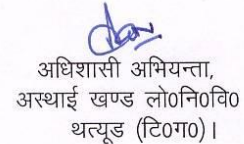 अधिशासी अभियन्ता,
अस्थाई खण्ड लो०नि०वि०
थत्यूड (टि०ग०)।